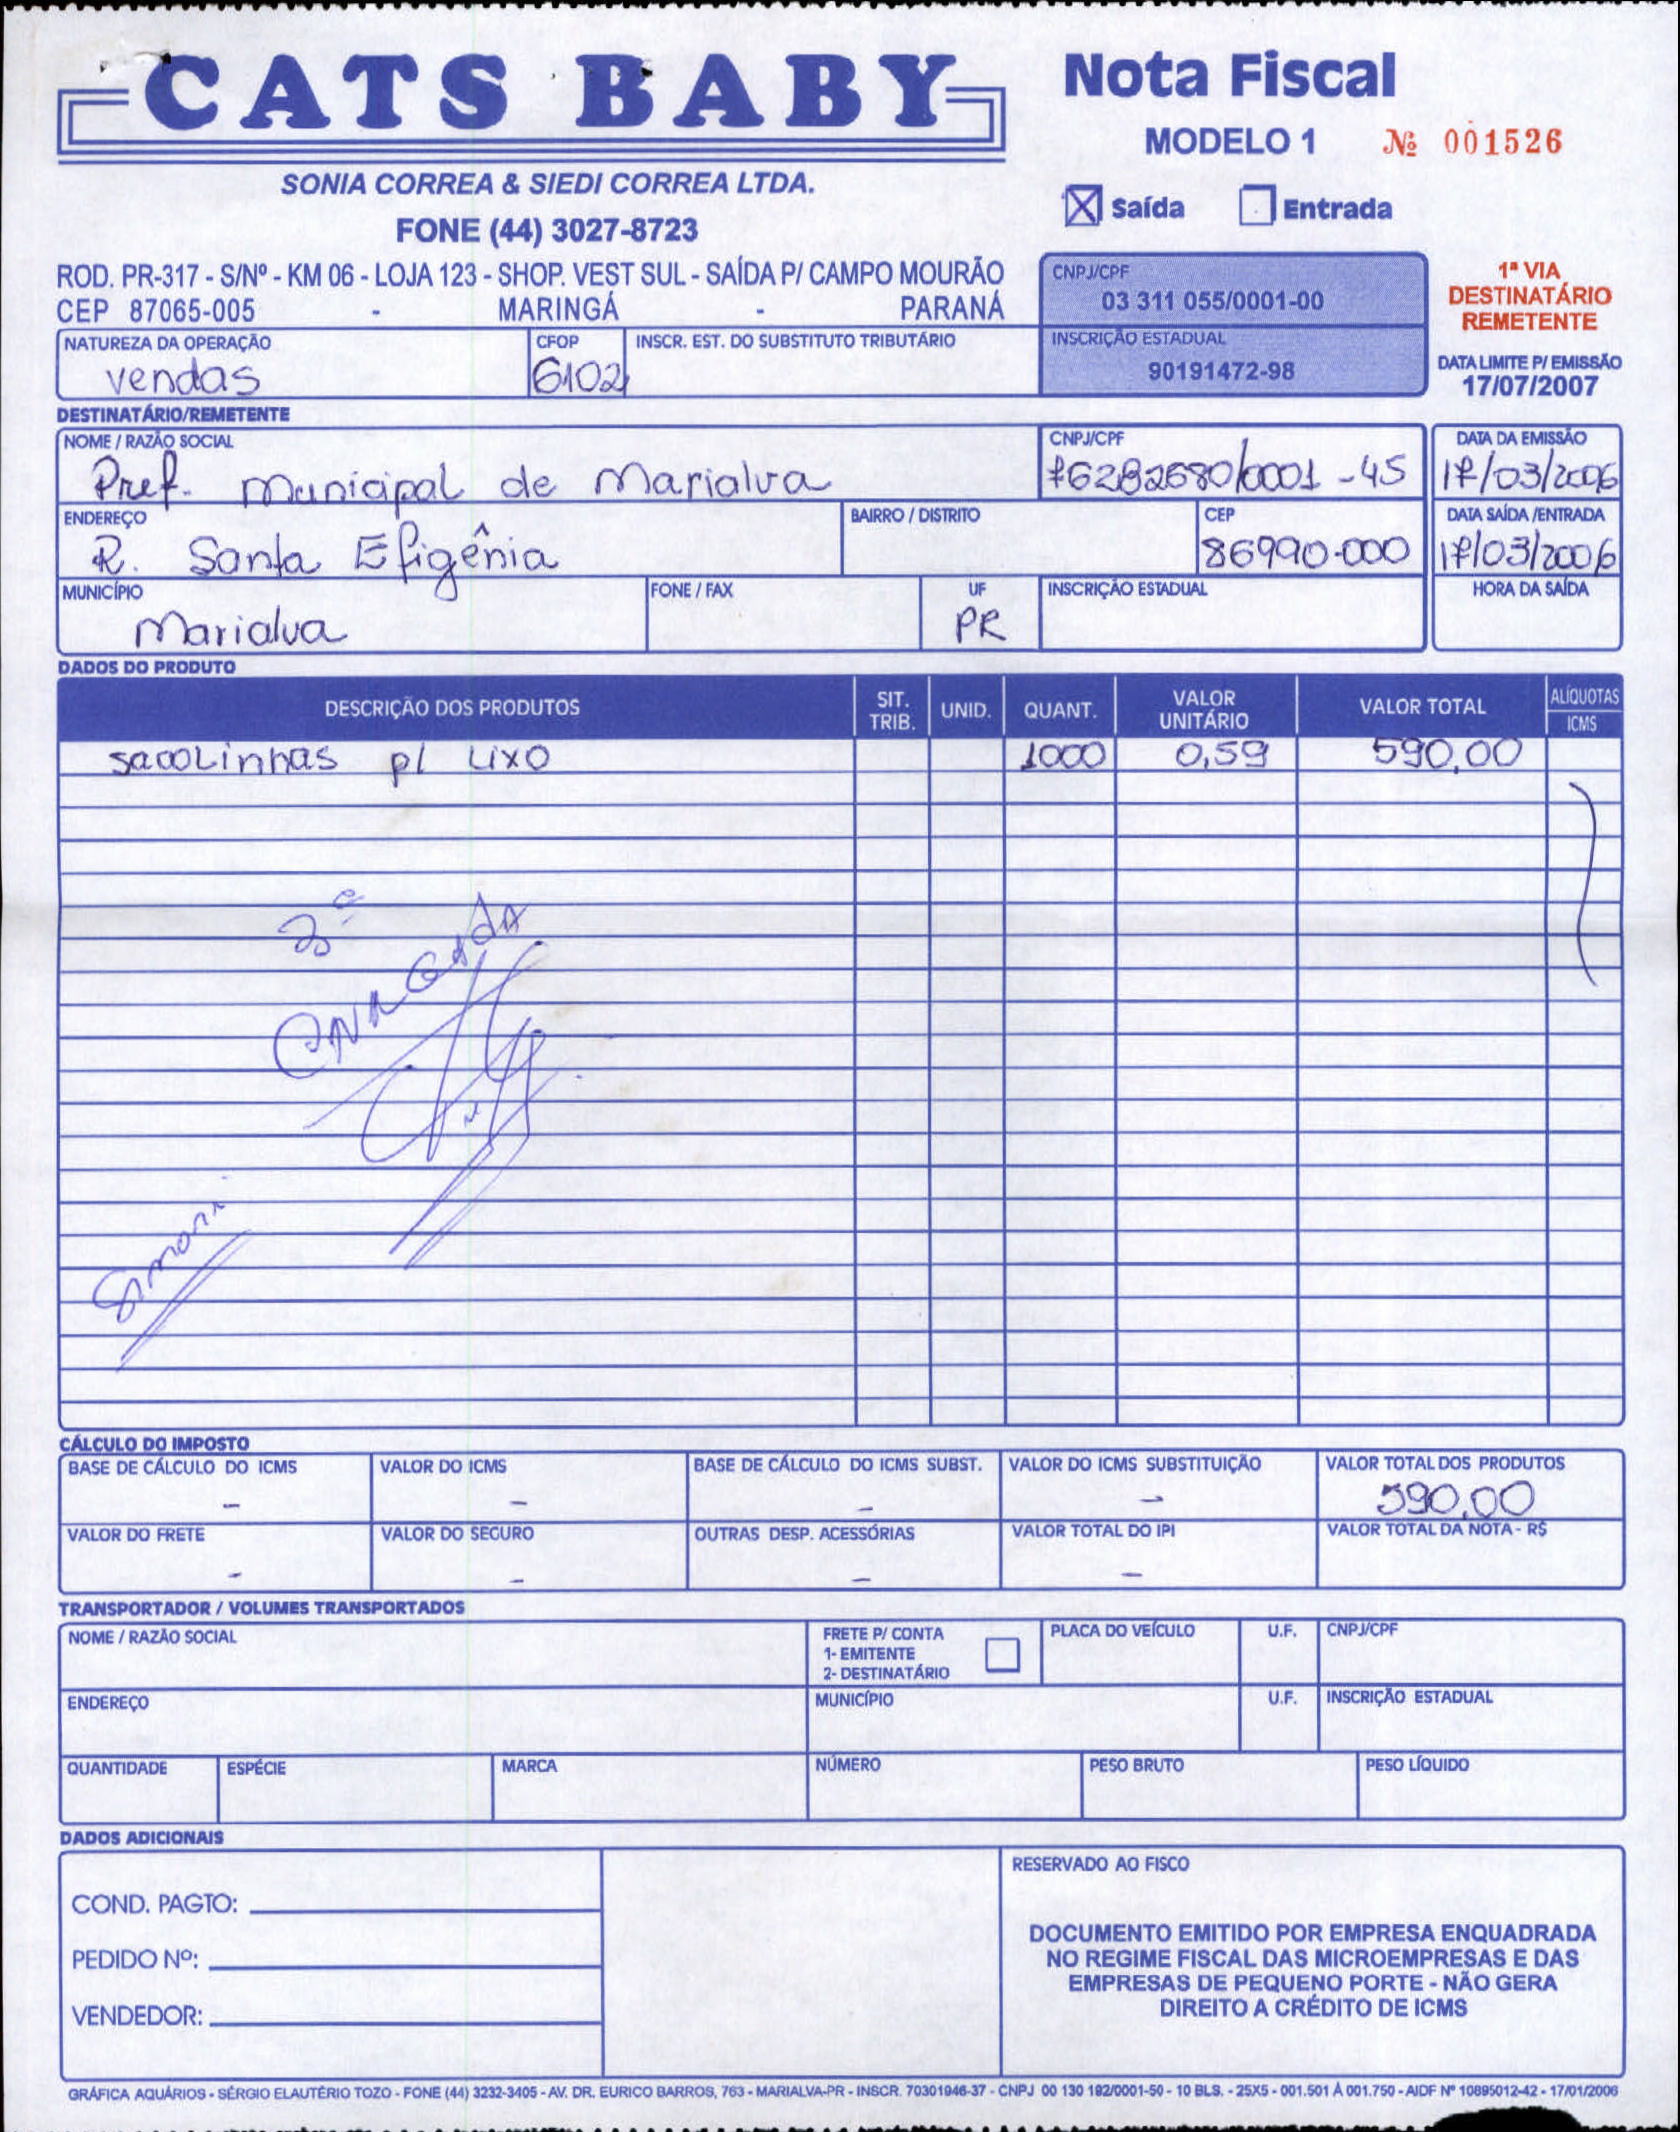 CATS BABY
SONIA CORREA & SIEDI CORREA LTDA.
FONE (44) 3027-8723
ROD. PR-317 - S/Nº - KM 06 - LOJA 123 - SHOP. VEST SUL - SAÍDA P/ CAMPO MOURÃO
CEP 87065-005 - MARINGÁ - PARANÁ
Nota Fiscal
MODELO 1 Nº 001526
X Saída Entrada
CNPJ/CPF
03 311 055/0001-00
INSCRIÇÃO ESTADUAL
90191472-98
1ª VIA
DESTINATÁRIO
REMETENTE
DATA LIMITE P/ EMISSÃO
17/07/2007
NATUREZA DA OPERAÇÃO CFOP INSCR. EST. DO SUBSTITUTO TRIBUTÁRIO
vendas 6102
DESTINATÁRIO/REMETENTE
NOME / RAZÃO SOCIAL CNPJ/CPF DATA DA EMISSÃO
Pref. municipal de Marialva 76282680/0001-45 17/03/2006
ENDEREÇO BAIRRO / DISTRITO CEP DATA SAÍDA /ENTRADA
R. Santa Efigênia 86990-000 17/03/2006
MUNICÍPIO FONE / FAX UF INSCRIÇÃO ESTADUAL HORA DA SAÍDA
Marialva PR
DADOS DO PRODUTO
DESCRIÇÃO DOS PRODUTOS SIT. TRIB. UNID. QUANT. VALOR UNITÁRIO VALOR TOTAL ALÍQUOTAS ICMS
sacolinhas p/ lixo 1000 0,59 590,00
CÁLCULO DO IMPOSTO
BASE DE CÁLCULO DO ICMS VALOR DO ICMS BASE DE CÁLCULO DO ICMS SUBST. VALOR DO ICMS SUBSTITUIÇÃO VALOR TOTAL DOS PRODUTOS
- - - - 590,00
VALOR DO FRETE VALOR DO SEGURO OUTRAS DESP. ACESSÓRIAS VALOR TOTAL DO IPI VALOR TOTAL DA NOTA - R$
- - - -
TRANSPORTADOR / VOLUMES TRANSPORTADOS
NOME / RAZÃO SOCIAL FRETE P/ CONTA PLACA DO VEÍCULO U.F. CNPJ/CPF
1- EMITENTE
2- DESTINATÁRIO
ENDEREÇO MUNICÍPIO U.F. INSCRIÇÃO ESTADUAL
QUANTIDADE ESPÉCIE MARCA NÚMERO PESO BRUTO PESO LÍQUIDO
DADOS ADICIONAIS
COND. PAGTO:
PEDIDO Nº:
VENDEDOR:
RESERVADO AO FISCO
DOCUMENTO EMITIDO POR EMPRESA ENQUADRADA
NO REGIME FISCAL DAS MICROEMPRESAS E DAS
EMPRESAS DE PEQUENO PORTE - NÃO GERA
DIREITO A CRÉDITO DE ICMS
GRÁFICA AQUÁRIOS - SÉRGIO ELAUTÉRIO TOZO - FONE (44) 3232-3405 - AV. DR. EURICO BARROS, 763 - MARIALVA-PR - INSCR. 70301946-37 - CNPJ 00 130 192/0001-50 - 10 BLS. - 25X5 - 001.501 À 001.750 - AIDF Nº 10895012-42 - 17/01/2006